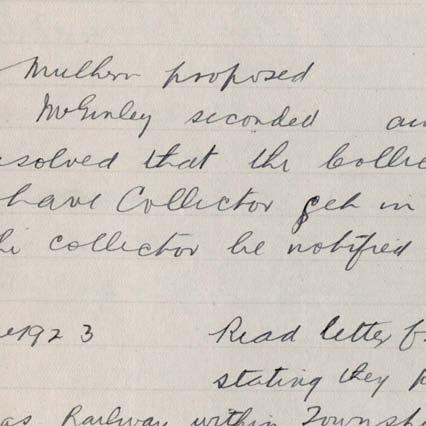 Mulhern proposed
McGinley seconded
solved that the
have Collector get in
collector be notified
1923
Read letter
stating they
Railway within